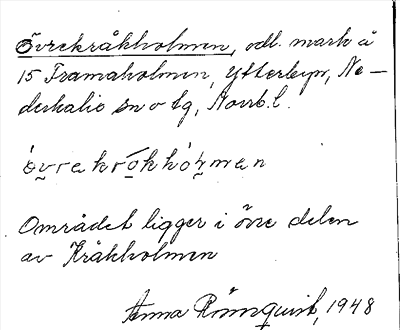 Övrekråkholmen, odl. mark å
15 Framaholmen, Ytterbyn, Ne-
derkalix sn o tg, Norrb. l.
övrakrókhòḷmen
Området ligger i övre delen
av Kråkholmen
Anna Rönnquist, 1948